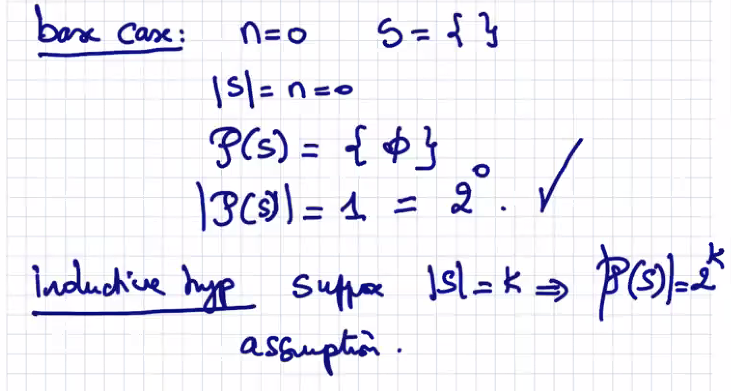 base case: n=0 S = { }
|S| = n = 0
P(S) = { ϕ }
|P(S)| = 1 = 2⁰. ✓
inductive hyp suppose |S| = k ⇒ |P(S)| = 2ᵏ
assumption.